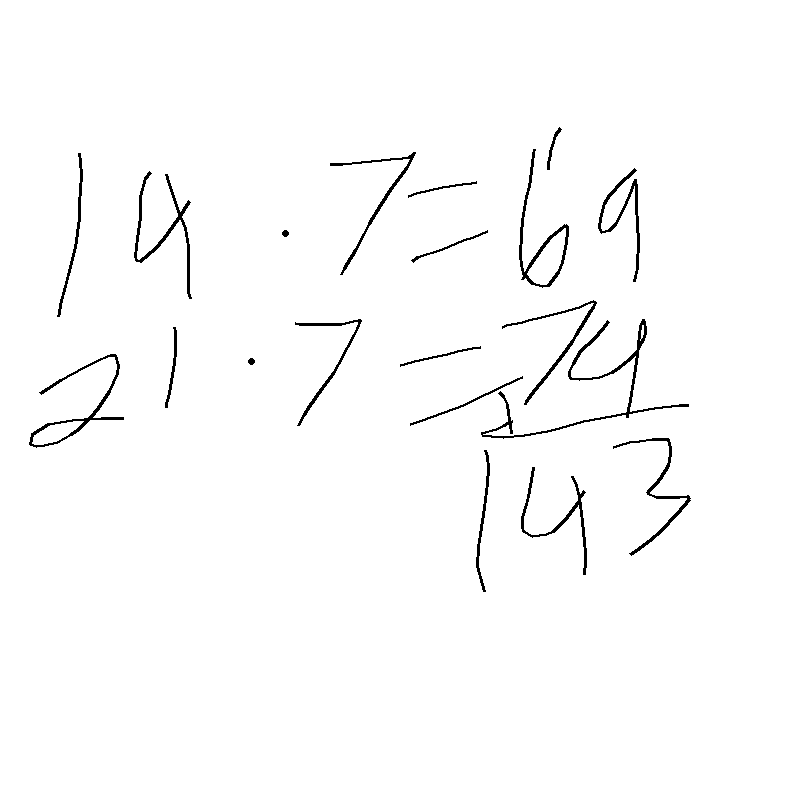 14 · 7 = 69
21 · 7 = 74
143